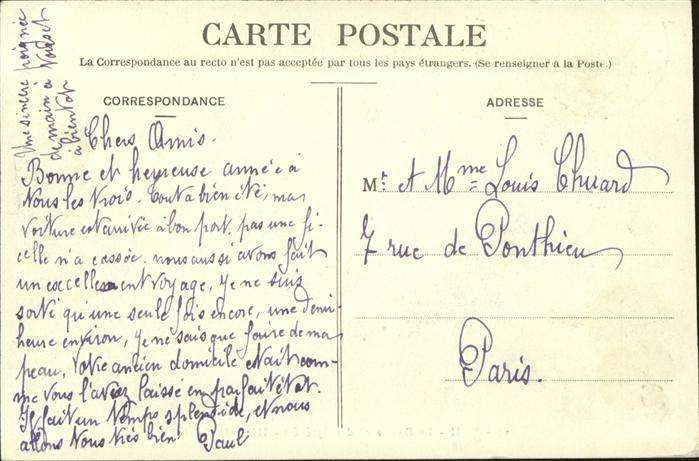 CARTE POSTALE
La Correspondance au recto n'est pas acceptée par tous les pays étrangers. (Se renseigner à la Poste.)
CORRESPONDANCE
Chers Amis.
Bonne et heureuse année à
Vous les trois. Tout a bien été, ma
voiture est arrivée à bon port, pas une fi-
celle n'a cassée. nous aussi avons fait
un excellent voyage, je ne suis
sorti qu'une seule fois encore, une demi-
heure environ, je ne sais que faire de ma
peau, votre ancien domicile était com-
me vous l'aviez laissé en parfait état.
Il fait un temps splendide, et nous
allons tous très bien Paul
Une sincère poignée
de main à
à bientôt
ADRESSE
Mr. et Mme Louis Chuard
7 rue de Ponthieu
Paris.